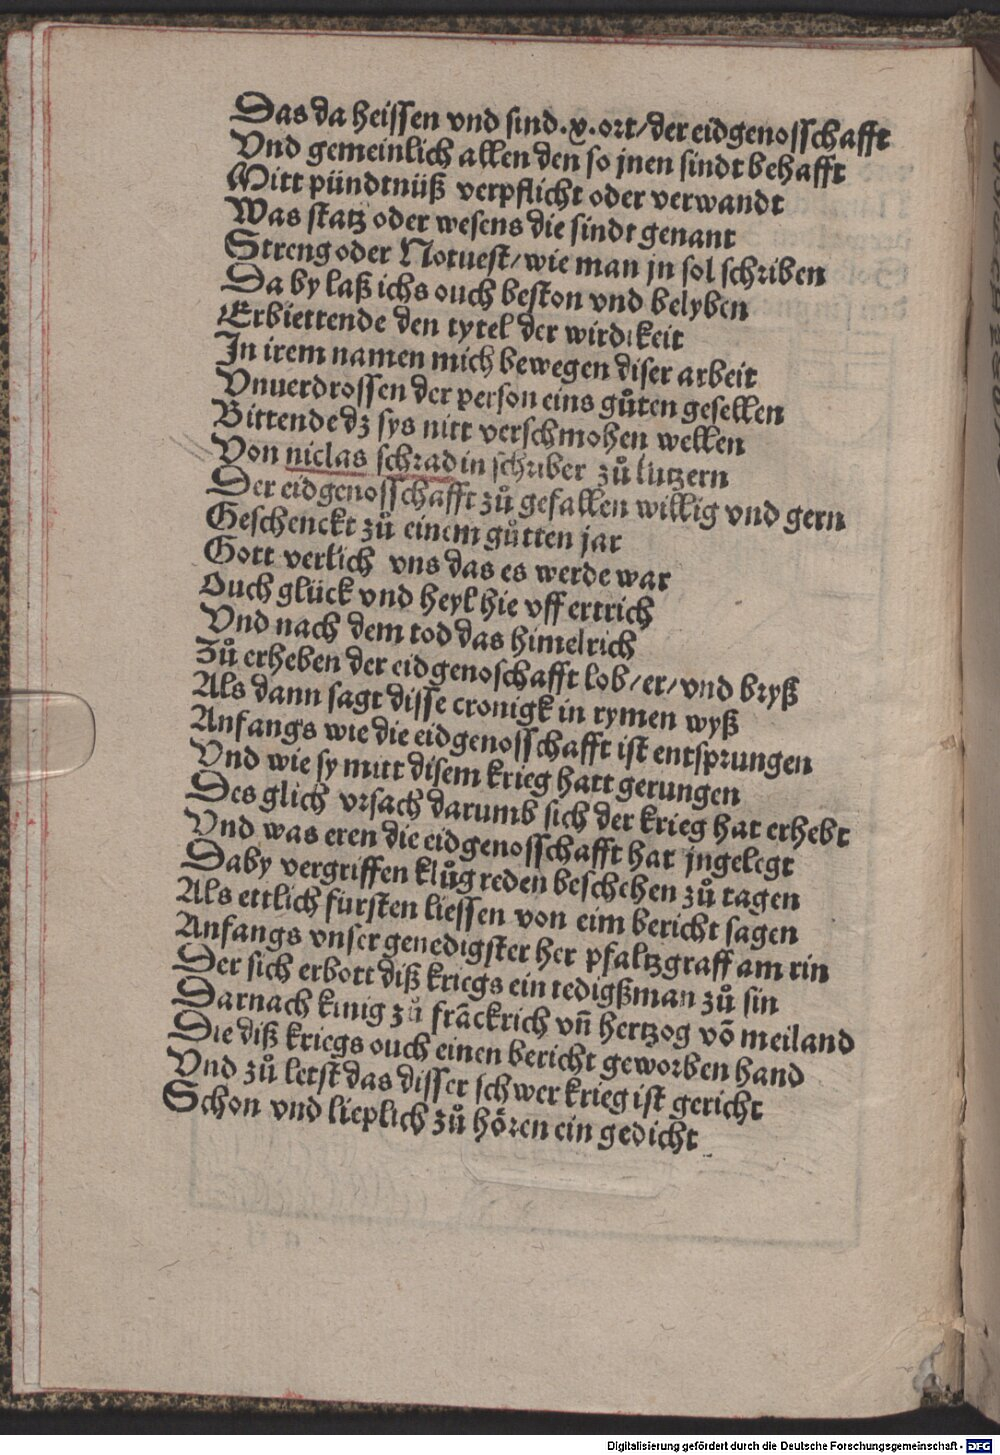 Das da heissen vnd sind.x.ort/der eidgenosschafft
Vnd gemeinlich allen den so jnen sindt behafft
Mitt pündtnüß verpflicht oder verwandt
Was statz oder wesens die sindt genant
Streng oder Notuest/wie man jn sol schriben
Da by laß ichs ouch beston vnd belyben
Erbiettende den tytel der wirdikeit
In irem namen mich bewegen diser arbeit
Vnuerdrossen der person eins gůten gesellen
Bittende dz sys nitt verschmohen wellen
Von niclas schradin schriber zů lutzern
Der eidgenosschafft zů gefallen willig vnd gern
Geschenckt zů einem gůtten jar
Gott verlich vns das es werde war
Ouch glück vnd heyl hie vff ertrich
Vnd nach dem tod das himelrich
Zů erheben der eidgenoschafft lob/er/vnd bryß
Als dann sagt disse cronigk in rymen wyß
Anfangs wie die eidgenosschafft ist entsprungen
Vnd wie sy mitt disem krieg hatt gerungen
Des glich vrsach darumb sich der krieg hat erhebt
Vnd was eren die eidgenosschafft hat jngelegt
Daby vergriffen klůg reden beschehen zů tagen
Als ettlich fursten liessen von eim bericht sagen
Anfangs vnser genedigster her pfaltzgraff am rin
Der sich erbott diß kriegs ein tedigßman zů sin
Darnach kinig zů frāckrich vn̄ hertzog vō meiland
Die diß kriegs ouch einen bericht geworben hand
Vnd zů letst das disser schwer krieg ist gericht
Schon vnd lieplich zů hören ein gedicht
Digitalisierung gefördert durch die Deutsche Forschungsgemeinschaft - DFG